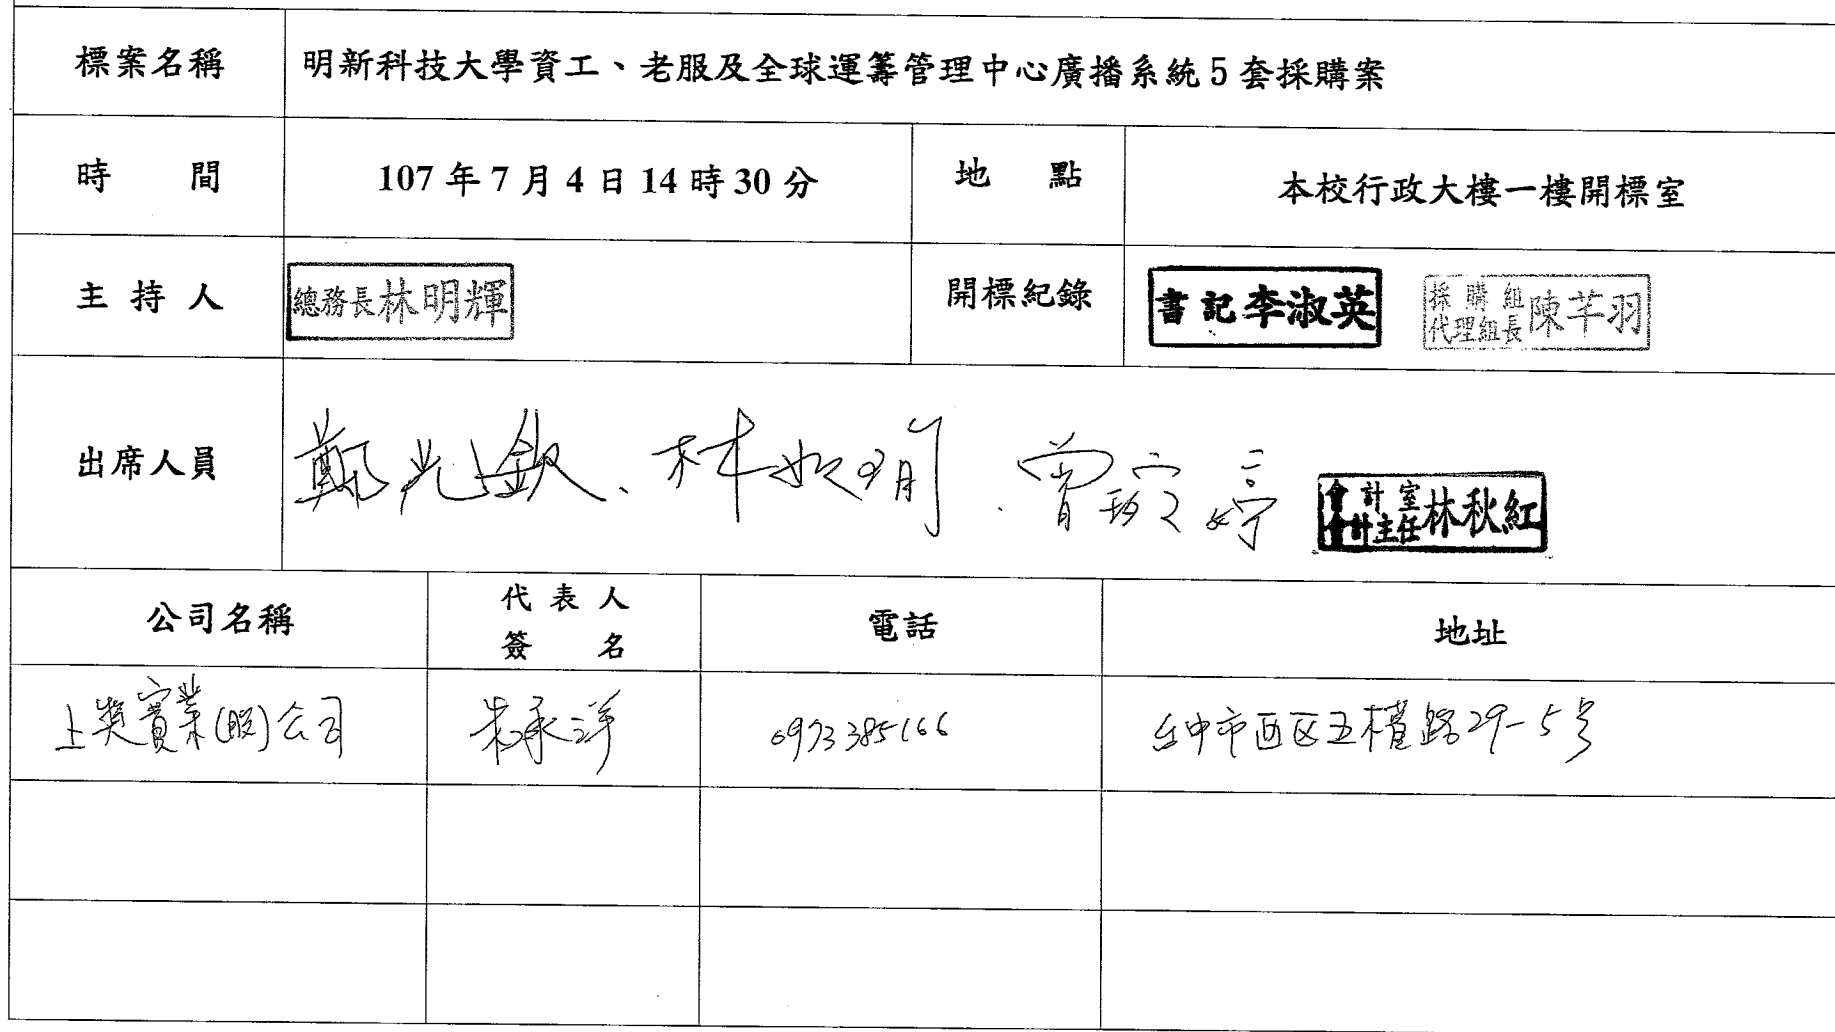 標案名稱 明新科技大學資工、老服及全球運籌管理中心廣播系統5套採購案
時間 107年7月4日14時30分 地點 本校行政大樓一樓開標室
主持人 總務長林明輝 開標紀錄 書記李淑英 採購組代理組長陳芊羽
出席人員 鄭光欽、林如 、曾 婷 會計室會計主任林秋紅
公司名稱 代表人簽名 電話 地址
上奖實業(股)公司 朱承洋 0973385166 台中市西区五權路29-5号